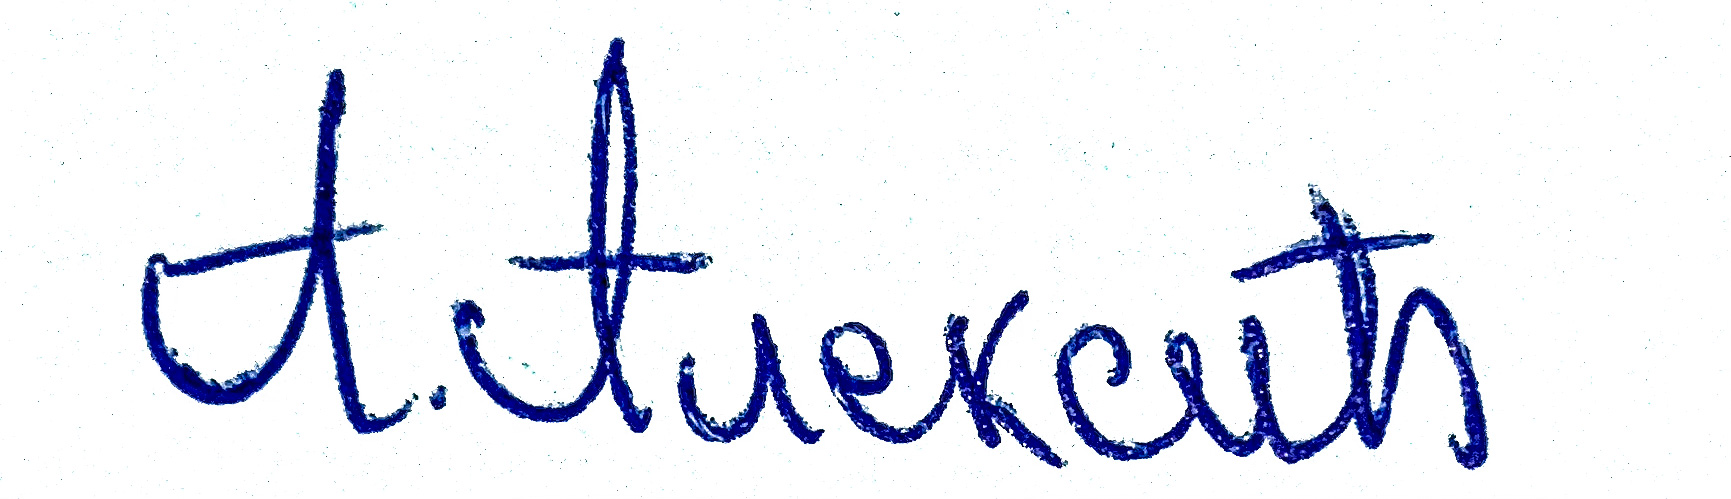 А. Алексић